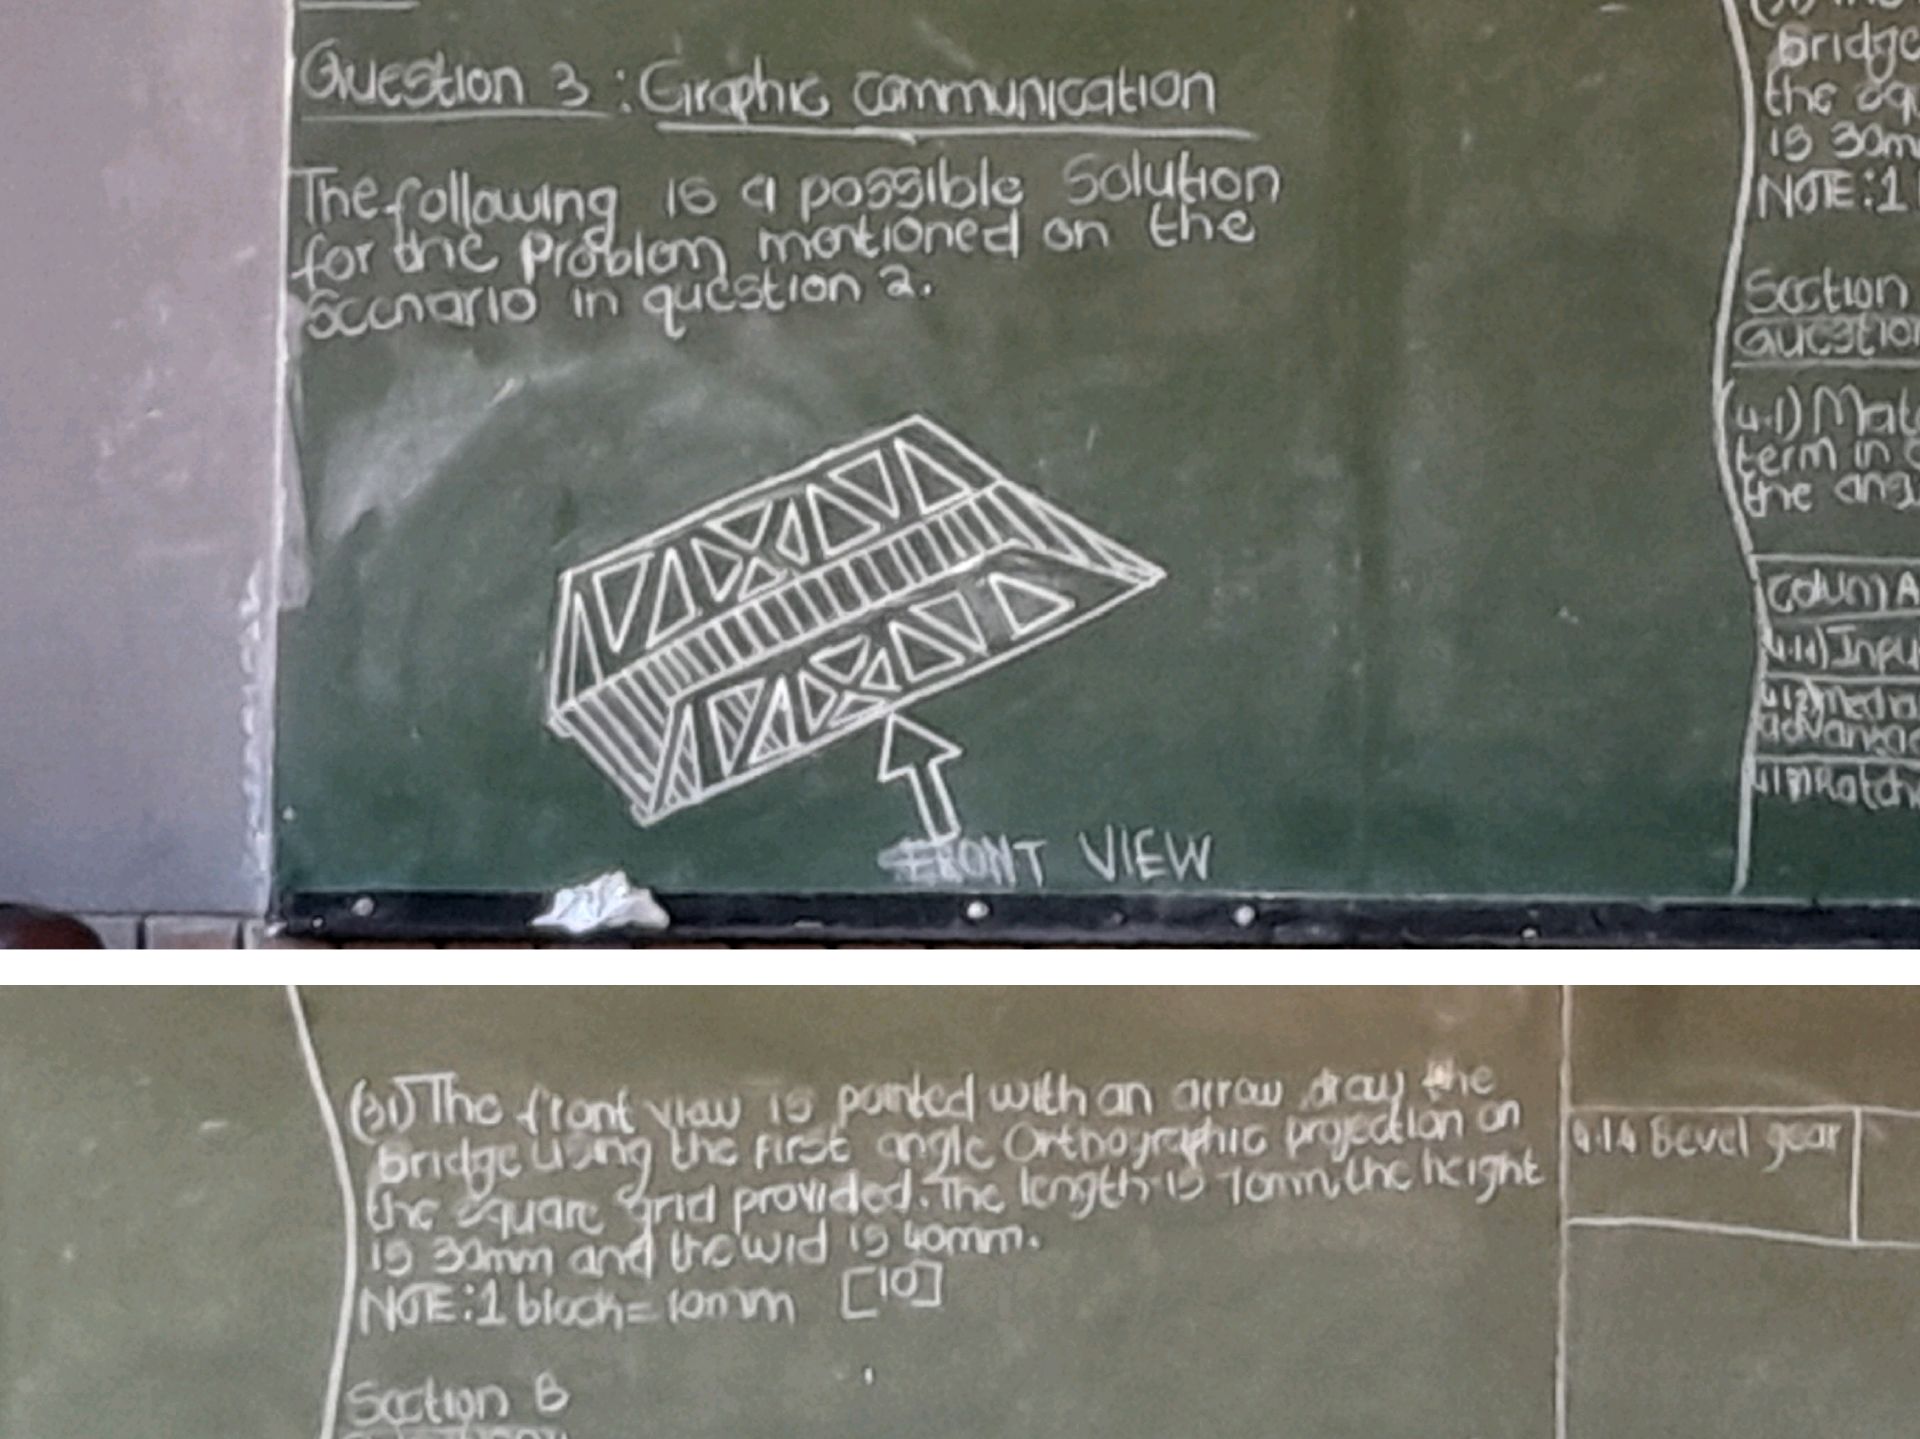 Question 3 : Graphic communication
The following is a possible Solution
for the Problem mentioned on the
Scenario in question 2.
FRONT VIEW
bridge
the squ
is 30m
NOTE:1
Section
Question
4.1) Mat
term in
the angl
Column A
4.1.1) Inpu
4.1.2) Mecha
advantag
Ratch
(3.1) The front view is pointed with an arrow draw the
bridge using the first angle Orthographic projection on
the square grid provided. The length is 70mm, the height
is 30mm and the wid is 40mm.
NOTE:1 block = 10mm [10]
Section B
4.1.4 Bevel gear